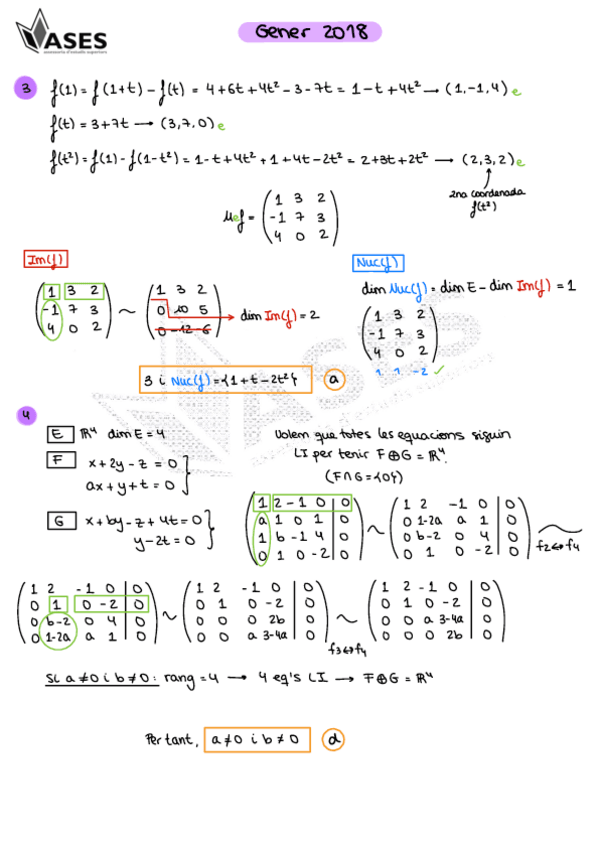 VASES
assessoria d'estudis superiors
Gener 2018
3 f(1) = f(1+t) - f(t) = 4+6t+4t² - 3 - 7t = 1 - t + 4t² → (1,-1,4)e
f(t) = 3+7t → (3,7,0)e
f(t²) = f(1) - f(1-t²) = 1-t+4t²+1+4t-2t² = 2+3t+2t² → (2,3,2)e
2na coordenada
f(t²)
Mef =
1 3 2
-1 7 3
4 0 2
Im(f)
1 3 2
-1 7 3
4 0 2
~
1 3 2
0 10 5
0 -12 -6
dim Im(f) = 2
Nuc(f)
dim Nuc(f) = dim E - dim Im(f) = 1
1 3 2
-1 7 3
4 0 2
1 1 -2 ✓
3 i Nuc(f) = {1+t-2t²} a
4
E ℝ⁴ dim E = 4
F x+2y-z = 0
ax+y+t = 0
G x+by-z+4t = 0
y-2t = 0
Volem que totes les equacions siguin
LI per tenir F⊕G = ℝ⁴.
(F∩G = {0})
1 2 -1 0 | 0
a 1 0 1 | 0
1 b -1 4 | 0
0 1 0 -2 | 0
~
1 2 -1 0 | 0
0 1-2a a 1 | 0
0 b-2 0 4 | 0
0 1 0 -2 | 0
~
f2↔f4
1 2 -1 0 | 0
0 1 0 -2 | 0
0 b-2 0 4 | 0
0 1-2a a 1 | 0
~
1 2 -1 0 | 0
0 1 0 -2 | 0
0 0 0 2b | 0
0 0 a 3-4a | 0
~
f3↔f4
1 2 -1 0 | 0
0 1 0 -2 | 0
0 0 a 3-4a | 0
0 0 0 2b | 0
Si a≠0 i b≠0: rang = 4 → 4 eq's LI → F⊕G = ℝ⁴
Per tant, a≠0 i b≠0 d